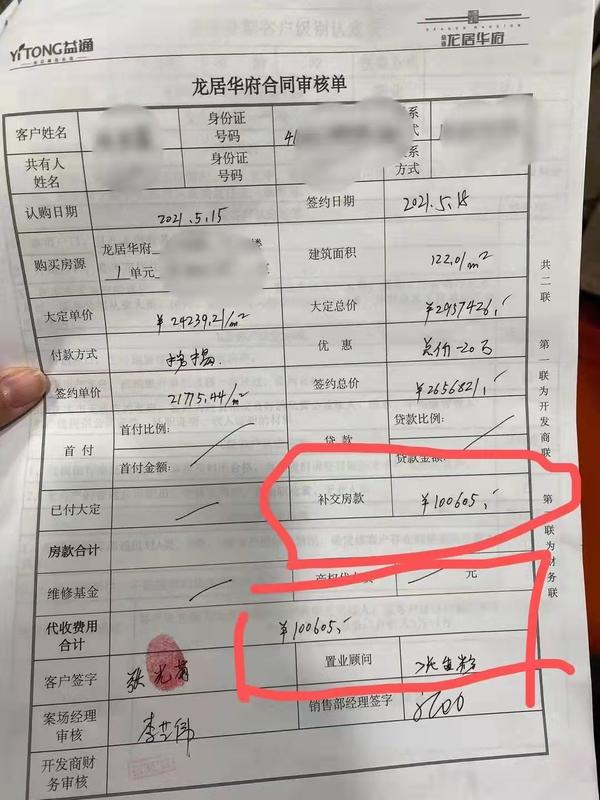 YiTONG益通
龙居华府
龙居华府合同审核单
客户姓名 身份证号码 41
共有人姓名 身份证号码 联系方式
认购日期 2021.5.15 签约日期 2021.5.18
购买房源 龙居华府 楼 1单元 建筑面积 122.01/m²
大定单价 ¥24239.21/m² 大定总价 ¥2957426.
付款方式 按揭. 优惠 总价-20万
签约单价 21775.44/m² 签约总价 ¥2656821.
首付 首付比例: 贷款 贷款比例:
首付金额: 贷款金额:
已付大定 补交房款 ¥100605.
房款合计
维修基金 元
代收费用合计 ¥100605.
客户签字 置业顾问
案场经理审核 销售部经理签字
开发商财务审核
共二联 第一联为开发商联 第二联为财务联